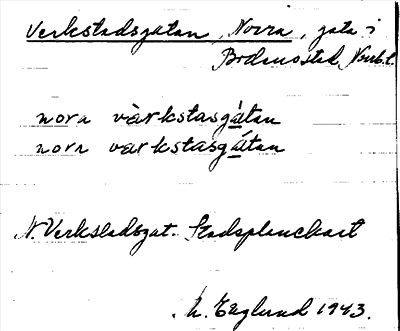 Verkstadsgatan, Norra, gata i
Bodens stad, Nbt.
nora vàrkstasgátan
nora varkstasgátan
N. Verkstadsgat. Stadsplanekart
M. Englund 1943.